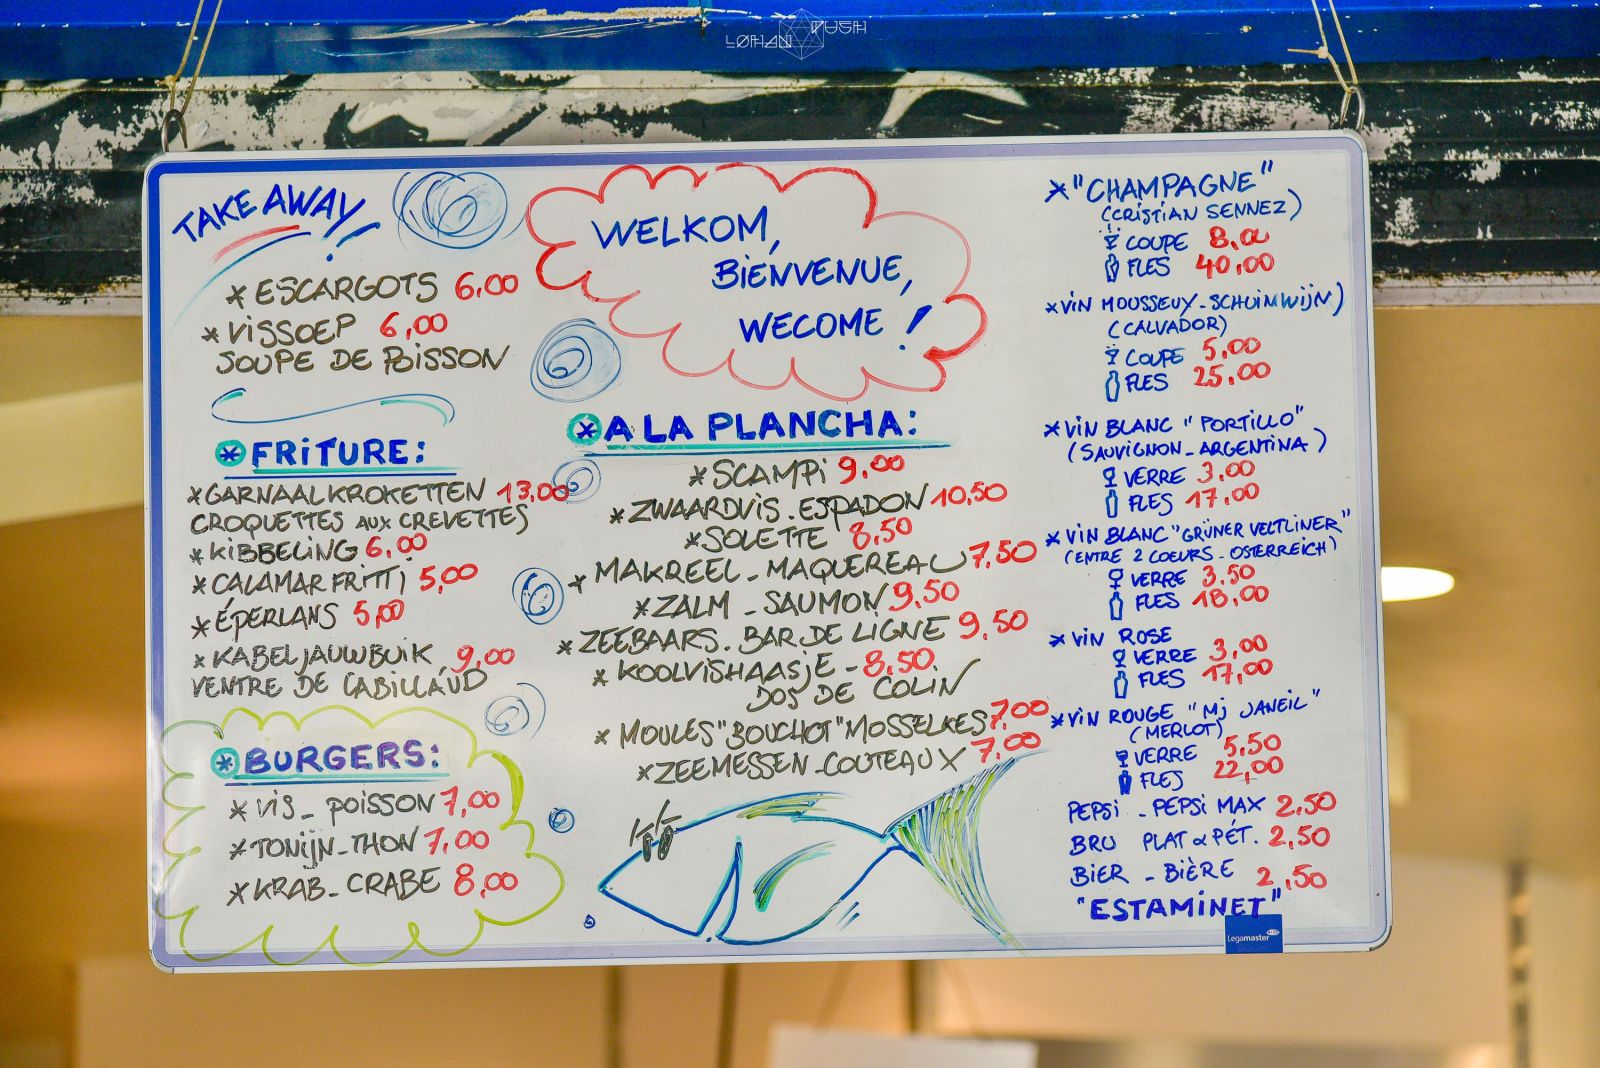 LOHAN MUSH
TAKE AWAY!
* ESCARGOTS 6,00
* VISSOEP 6,00
SOUPE DE POISSON
* FRITURE:
* GARNAALKROKETTEN 13,00
CROQUETTES AUX CREVETTES
* KIBBELING 6,00
* CALAMAR FRITTI 5,00
* ÉPERLANS 5,00
* KABELJAUWBUIK 9,00
VENTRE DE CABILLAUD
* BURGERS:
* VIS - POISSON 7,00
* TONIJN - THON 7,00
* KRAB - CRABE 8,00
WELKOM,
BIENVENUE,
WECOME !
* A LA PLANCHA:
* SCAMPI 9,00
* ZWAARDVIS - ESPADON 10,50
* SOLETTE 8,50
* MAKREEL - MAQUEREAU 7,50
* ZALM - SAUMON 9,50
* ZEEBAARS - BAR DE LIGNE 9,50
* KOOLVISHAASJE - 8,50
DOS DE COLIN
* MOULES "BOUCHOT" MOSSELKES 7,00
* ZEEMESSEN - COUTEAUX 7,00
* "CHAMPAGNE"
(CRISTIAN SENNEZ)
COUPE 8,00
FLES 40,00
* VIN MOUSSEUX - SCHUIMWIJN)
(CALVADOR)
COUPE 5,00
FLES 25,00
* VIN BLANC "PORTILLO"
(SAUVIGNON - ARGENTINA)
VERRE 3,00
FLES 17,00
* VIN BLANC "GRÜNER VELTLINER"
(ENTRE 2 COEURS - OSTERREICH)
VERRE 3,50
FLES 18,00
* VIN ROSE
VERRE 3,00
FLES 17,00
* VIN ROUGE "MJ JANEIL"
(MERLOT)
VERRE 5,50
FLES 22,00
PEPSI - PEPSI MAX 2,50
BRU PLAT & PÉT. 2,50
BIER - BIÈRE 2,50
"ESTAMINET"
Legamaster